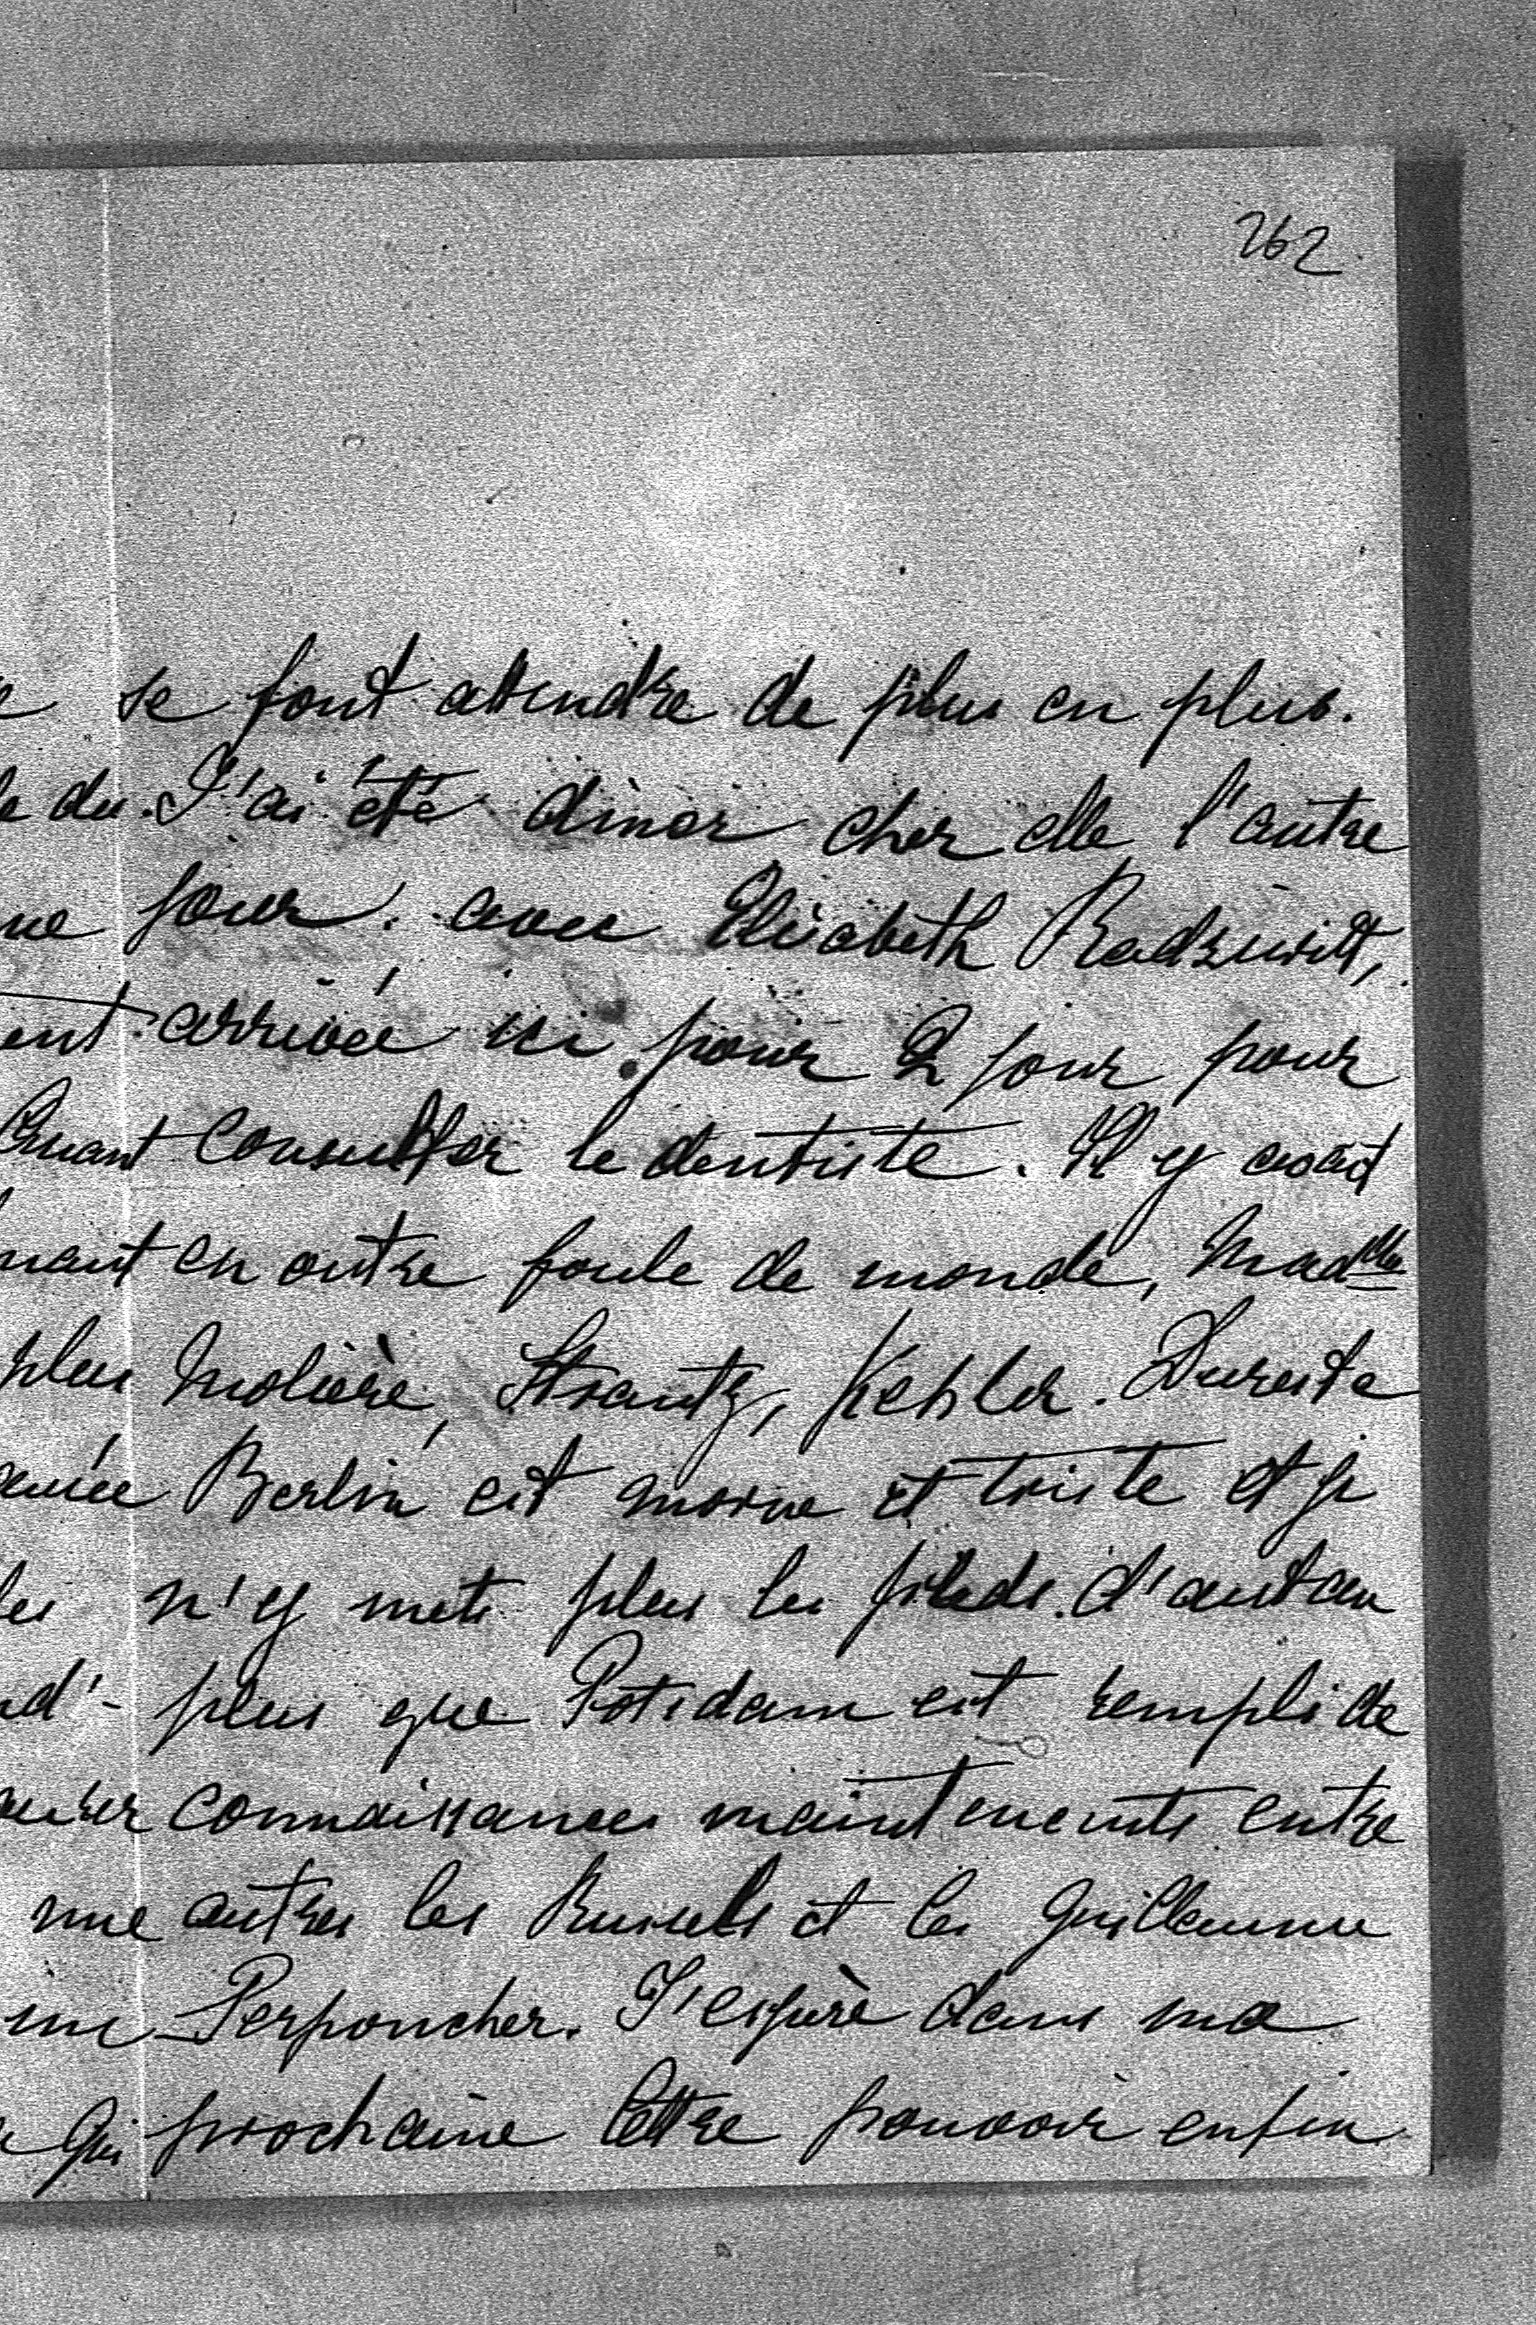 262
se font attendre de plus en plus.
J'ai été dîner cher elle l'autre
jour. avec Elisabeth Radziwill,
arrivée ici pour 2 jour pour
consulter le dentiste. Il y avait
en outre foule de monde, Madelle
Molière, Strantz, Kehler. Dureste
Berlin est morne et triste et je
n'y mets plus les pieds. d'autan
plus que Potsdam est rempli de
connaissances maintenents entre
autres les Russels et les Guillaume
Perponcher. J'espère dans ma
prochaine lettre pouvoir enfin